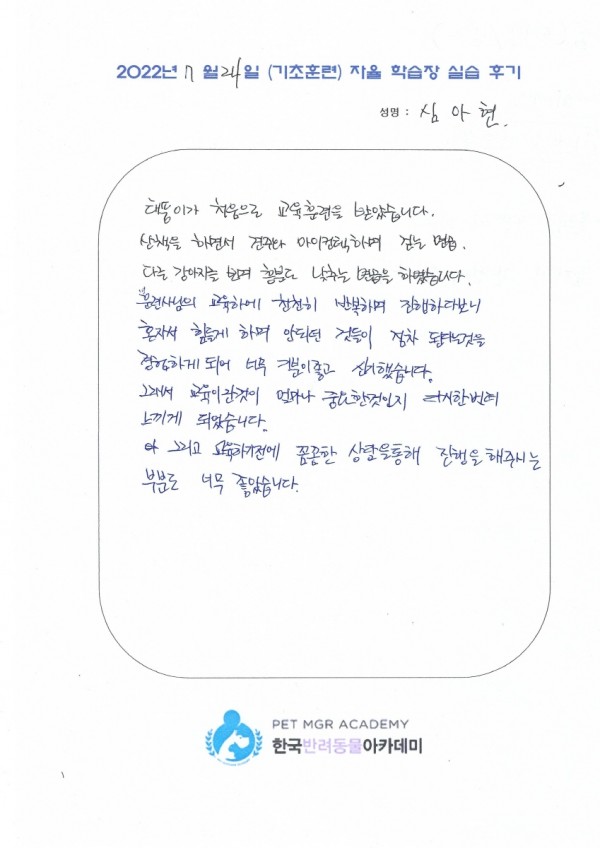 2022년 7 월 24 일 (기초훈련) 자율 학습장 실습 후기
성명 : 심 아 현.
태풍이가 처음으로 교육훈련을 받았습니다.
산책을 하면서 견주와 아이컨텍하며 걷는 연습.
다른 강아지를 보며 흥분도 낮추는 연습을 하였습니다.
훈련사님의 교육하에 천천히 반복하며 진행하다보니
혼자서 힘들게 하며 안되던 것들이 점차 된다는것을
경험하게 되어 너무 기분이좋고 신기했습니다.
그래서 교육이란것이 얼마나 중요한것인지 다시한번더
느끼게 되었습니다.
아 그리고 교육하기전에 꼼꼼한 상담을통해 진행을 해주시는
부분도 너무 좋았습니다.
PET MGR ACADEMY
한국반려동물아카데미